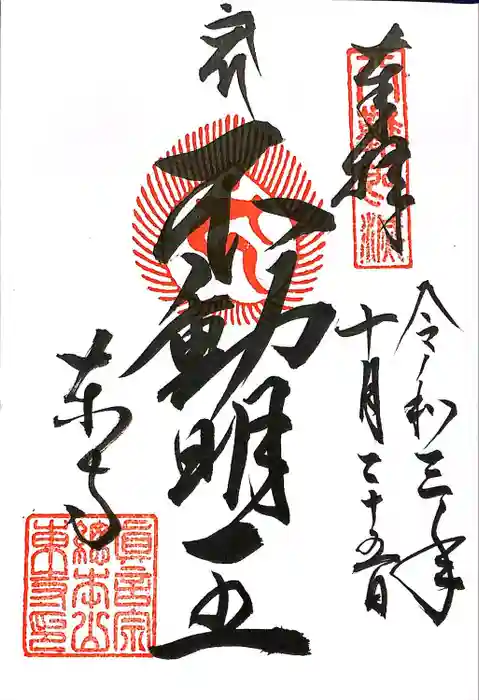 奉拝
令和三年
十月二十五日
不動明王
東寺
真言宗
總本山
東寺印